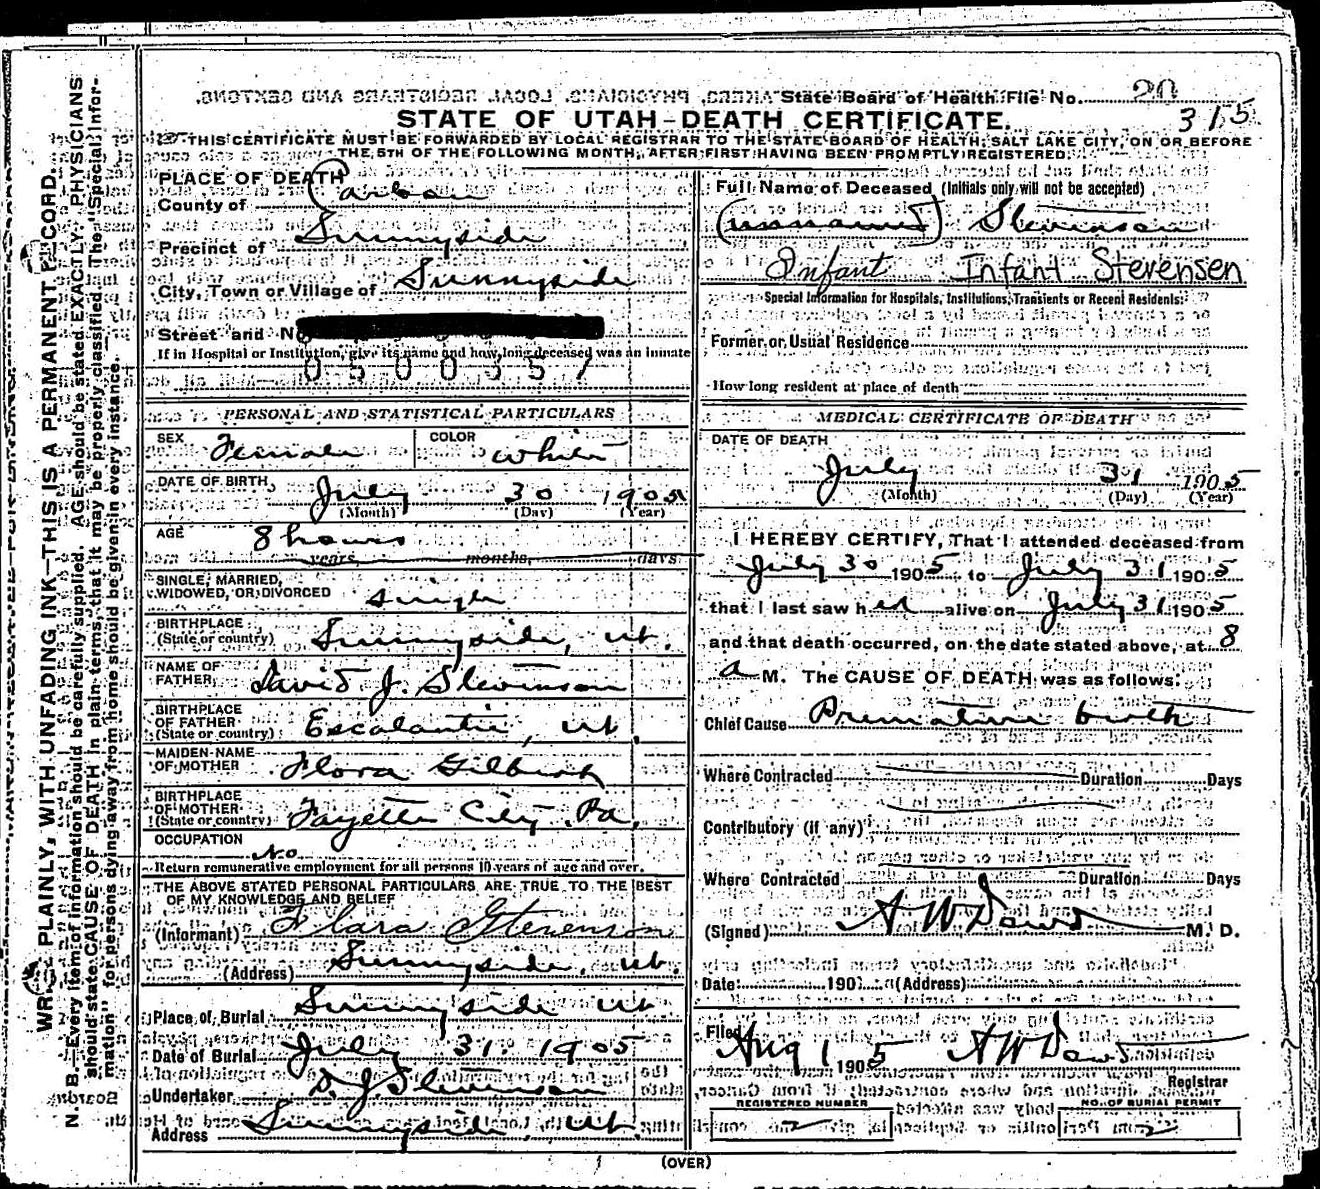 State Board of Health File No. 20
315
STATE OF UTAH—DEATH CERTIFICATE.
THIS CERTIFICATE MUST BE FORWARDED BY LOCAL REGISTRAR TO THE STATE BOARD OF HEALTH, SALT LAKE CITY, ON OR BEFORE
THE 5TH OF THE FOLLOWING MONTH, AFTER FIRST HAVING BEEN PROMPTLY REGISTERED.
WRITE PLAINLY, WITH UNFADING INK—THIS IS A PERMANENT RECORD.
N. B.—Every item of information should be carefully supplied. AGE should be stated EXACTLY. PHYSICIANS
should state CAUSE OF DEATH in plain terms, that it may be properly classified. The "Special Infor-
mation" for persons dying away from home should be given in every instance.
PLACE OF DEATH
County of Carbon
Precinct of Sunnyside
City, Town or Village of Sunnyside
Street and No
If in Hospital or Institution, give its name and how long deceased was an inmate
0500357
PERSONAL AND STATISTICAL PARTICULARS
SEX Female COLOR white
DATE OF BIRTH July 30 1905
(Month) (Day) (Year)
AGE 8 hours
years, months, days
SINGLE, MARRIED,
WIDOWED, OR DIVORCED single
BIRTHPLACE
(State or country) Sunnyside, Ut.
NAME OF
FATHER David J. Stevenson
BIRTHPLACE
OF FATHER
(State or country) Escalante, Ut.
MAIDEN NAME
OF MOTHER Flora
BIRTHPLACE
OF MOTHER
(State or country) Fayette City Pa.
OCCUPATION
No
Return remunerative employment for all persons 10 years of age and over.
THE ABOVE STATED PERSONAL PARTICULARS ARE TRUE TO THE BEST
OF MY KNOWLEDGE AND BELIEF
(Informant) Flara Stevenson
(Address) Sunnyside, Ut.
Place of Burial Sunnyside Ut
Date of Burial July 31 1905
Undertaker D. J. Stevenson
Address Sunnyside, Ut.
Full Name of Deceased (Initials only will not be accepted)
(unnamed) Stevenson
Infant Infant Stevensen
Special Information for Hospitals, Institutions, Transients or Recent Residents:
Former or Usual Residence
How long resident at place of death
MEDICAL CERTIFICATE OF DEATH
DATE OF DEATH
July 31 1905
(Month) (Day) (Year)
I HEREBY CERTIFY, That I attended deceased from
July 30 1905 to July 31 1905
that I last saw her alive on July 31 1905
and that death occurred, on the date stated above, at 8
a M. The CAUSE OF DEATH was as follows:
Chief Cause Premature birth
Where Contracted Duration Days
Contributory (if any)
Where Contracted Duration Days
(Signed) A W Dowd M. D.
Date 190 (Address)
Filed Aug 1 1905 A W Dowd
Registrar
REGISTERED NUMBER
2
NO. OF BURIAL PERMIT
2
(OVER)